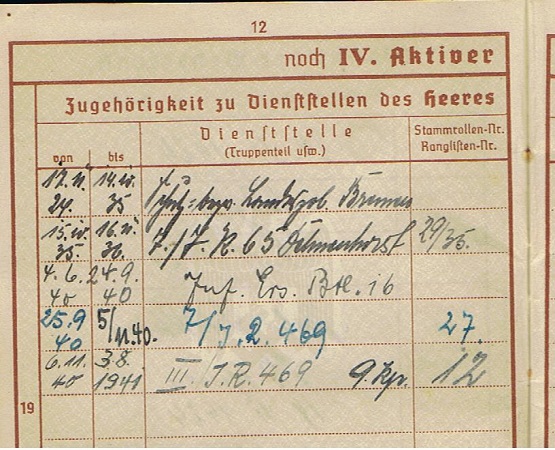 12
noch IV. Aktiver
Zugehörigkeit zu Dienststellen des Heeres
von bis Dienststelle (Truppenteil usw.) Stammrollen-Nr. Ranglisten-Nr.
35
15. 35. 36. 7./J. R. 65 Delmenhorst 29/35.
4.6. 40 24.9. 40 Inf. Ers. Btl. 16
25.9 40 5/11.40. 7/J.R. 469 27.
6.11. 40 3.8. 1941 III/J.R. 469 9.Kp. 12
19